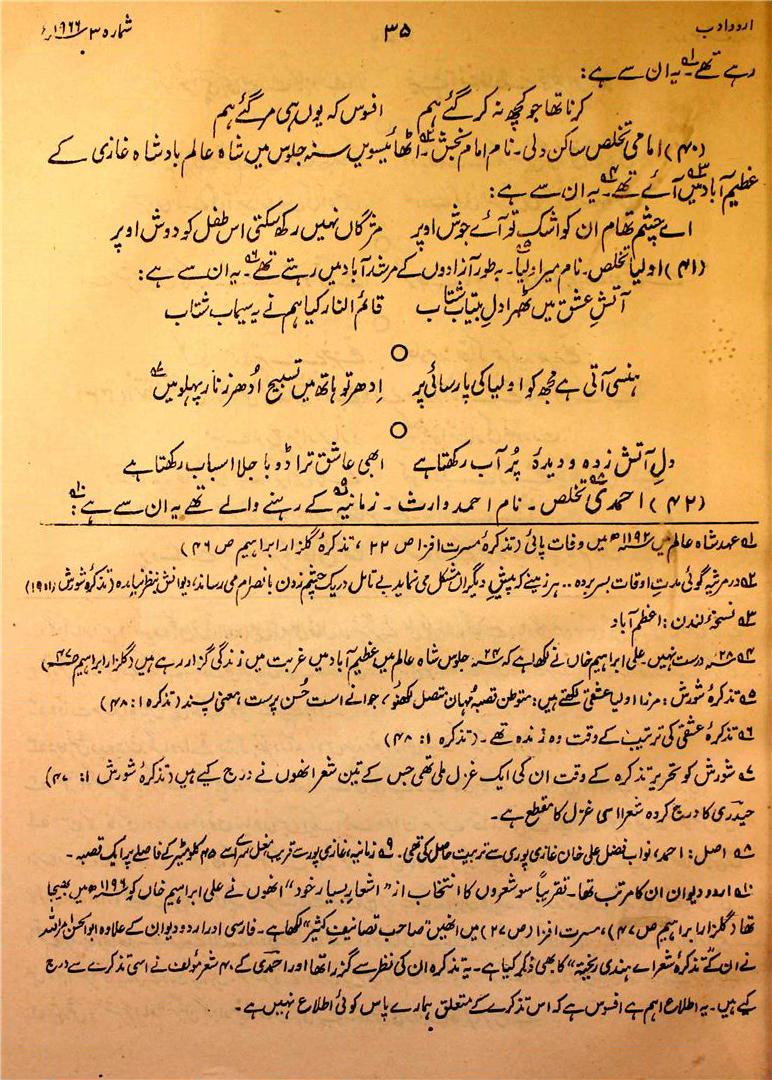 اردو ادب ۳۵ شمارہ ۳ ۱۹۶۶ء
رہے تھے۔ ؎۱ یہ ان سے ہے :
کرنا تھا جو کچھ نہ کر گئے ہم افسوس کہ یوں ہی مر گئے ہم
(۴۰) امامی تخلص ساکن دلی۔ نام امام بخش۔ ؎۲ اٹھائیسویں سنہ جلوس میں شاہ عالم بادشاہ غازی کے
عظیم آباد ؎۳ میں آئے تھے۔ ؎۴ یہ ان سے ہے :
اے چشم تھام ان کو اشک تو آئے جوش اوپر مژگاں نہیں رکھ سکتی اس طفل کو دوش اوپر
(۴۱) اولیا تخلص۔ نام میر اولیا۔ ؎۵ بہ طور آزادوں کے مرشد آباد میں رہتے تھے۔ ؎۶ یہ ان سے ہے :
آتشِ عشق میں ٹھہرا دلِ بیتاب شتاب قائم النار کیا ہم نے یہ سیماب شتاب
ہنسی آتی ہے مجھ کو اولیا کی پارسائی پر اِدھر تو ہاتھ میں تسبیح اُدھر زنار پہلو میں ؎۷
دلِ آتش زدہ و دیدۂ پُر آب رکھتا ہے ابھی عاشق ترا ڈوبا جلا اسباب رکھتا ہے
(۴۲) احمدی ؎۸ تخلص۔ نام احمد وارث۔ زمانیہ ؎۹ کے رہنے والے تھے یہ ان سے ہے : ؎۱۰
؎۱ عہد شاہ عالم میں ۱۱۹۲ھ میں وفات پائی (تذکرۂ مسرت افزا ص ۲۲، تذکرۂ گلزار ابراہیم ص ۴۶)
؎۲ در مرثیہ گوئی مدتِ اوقات بسر بردہ .. ہر زمینے کہ پیشِ دیگراں مشکل می نماید بے تامل در یک چشم زدن با نصرام می رساند، دیوانش بنظر نیامدہ (تذکرۂ شورش ۱: ۹۱)
؎۳ نسخۂ لندن : اعظم آباد
؎۴ ۲۸ سنہ درست نہیں۔ علی ابراہیم خاں نے لکھا ہے کہ ۲۴ سنہ جلوس شاہ عالم میں عظیم آباد میں غربت میں زندگی گزار رہے ہیں (گلزار ابراہیم ص ۴۷)
؎۵ تذکرۂ شورش : مرزا اولیا عشقی لکھتے ہیں : متوطن قصبۂ نُہان متصل لکھنؤ، جوانے است حُسن پرست معنی پسند (تذکرہ ۱: ۴۸)
؎۶ تذکرۂ عشقی کی ترتیب کے وقت وہ زندہ تھے۔ (تذکرہ ۱: ۴۸)
؎۷ شورش کو تحریرِ تذکرہ کے وقت ان کی ایک غزل ملی تھی جس کے تین شعر انھوں نے درج کیے ہیں (تذکرۂ شورش ۱: ۴۷)
حیدری کا درج کردہ شعر اسی غزل کا مقطع ہے۔
؎۸ اصل : احمد، نواب فضل علی خان غازی پوری سے تربیت حاصل کی تھی۔ ؎۹ زمانیہ، غازی پور سے قریب، مغل سرائے سے ۴۵ کلومیٹر کے فاصلے پر ایک قصبہ۔
؎۱۰ اردو دیوان ان کا مرتب تھا۔ تقریباً سو شعروں کا انتخاب از "اشعار بسیار خود" انھوں نے علی ابراہیم خاں کو ۱۱۹۶ھ میں بھیجا
تھا (گلزار ابراہیم ص ۴۷)، مسرت افزا (ص ۲۷) میں انھیں "صاحب تصانیف کثیر" لکھا ہے۔ فارسی اور اردو دیوان کے علاوہ ابوالحسن امر اللہ
نے ان کے "تذکرۂ شعراے ہندی ریختہ" کا بھی ذکر کیا ہے۔ یہ تذکرہ ان کی نظر سے گزرا تھا اور احمدی کے ۴۰ شعر مؤلف نے اسی تذکرے سے درج
کیے ہیں۔ یہ اطلاع اہم ہے افسوس ہے کہ اس تذکرے کے متعلق ہمارے پاس کوئی اطلاع نہیں ہے۔